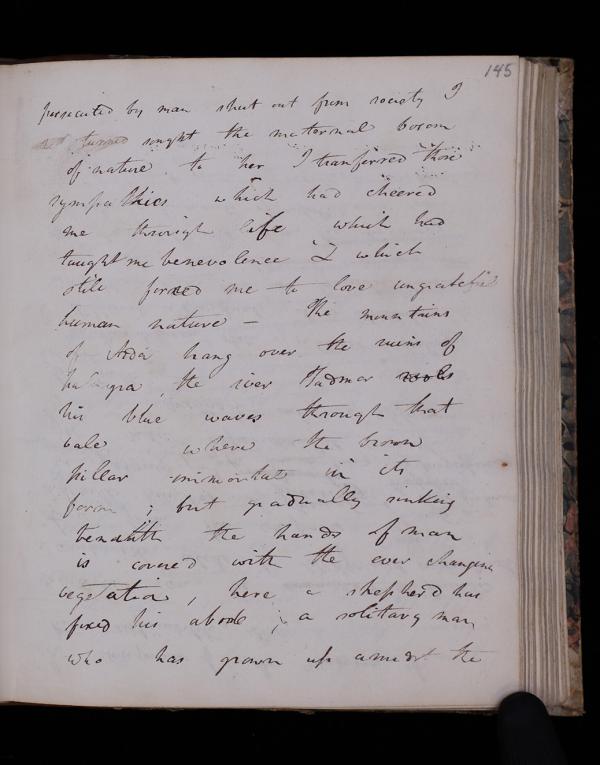 145
persecuted by man shut out from society I
turned sought the maternal bosom
of nature. to her I tranferred those
sympathies which had cheered
me through life which had
taught me benevolence & which
still forced me to love ungrateful
human nature — The mountains
of hang over the ruins of
the river Tadmor rools
his blue waves through that
vale where the brown
pillar immortal in its
form ; but gradually sinking
beneath the hands of man
is covered with the ever changing
vegetation, here a shepherd has
fixed his abode ; a solitary man
who has grown up amidst the